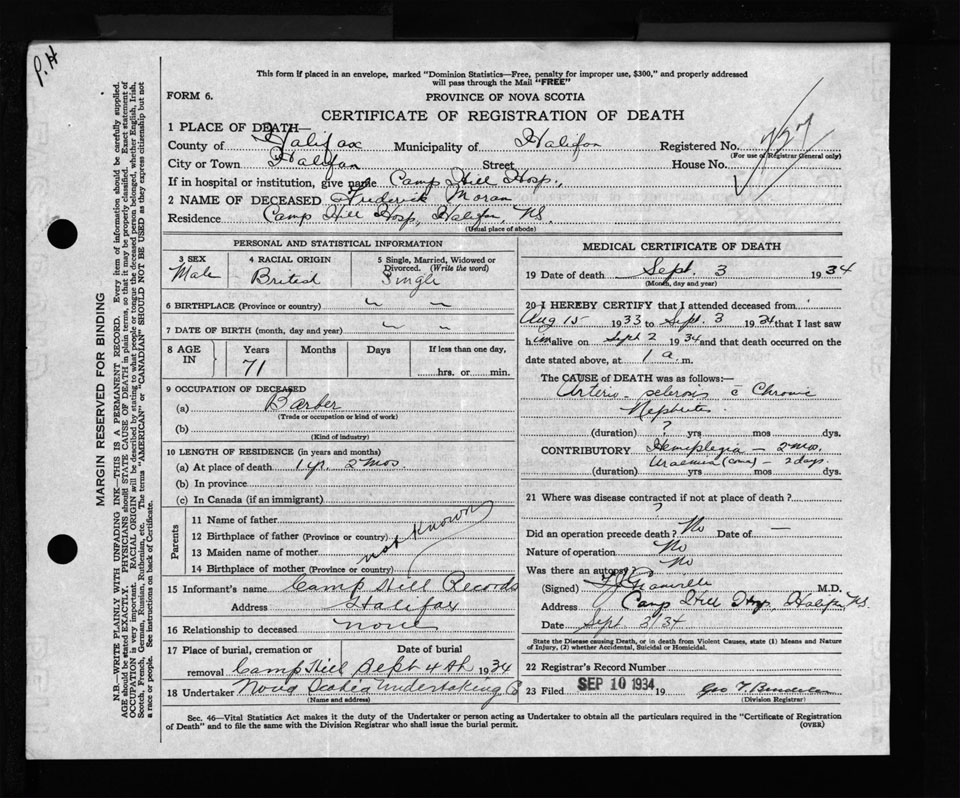 P.H
This form if placed in an envelope, marked "Dominion Statistics—Free, penalty for improper use, $300," and properly addressed
will pass through the Mail "FREE"
FORM 6.
PROVINCE OF NOVA SCOTIA
CERTIFICATE OF REGISTRATION OF DEATH
1 PLACE OF DEATH—
County of Halifax Municipality of Halifax Registered No. 727
(For use of Registrar General only)
City or Town Halifax Street House No.
If in hospital or institution, give name Camp Hill Hosp.,
2 NAME OF DECEASED Frederick Moran
Residence Camp Hill Hosp, Halifax, NS.
(Usual place of abode)
PERSONAL AND STATISTICAL INFORMATION
3 SEX
Male
4 RACIAL ORIGIN
British
5 Single, Married, Widowed or
Divorced. (Write the word)
Single
6 BIRTHPLACE (Province or country) " "
7 DATE OF BIRTH (month, day and year) " "
8 AGE
IN
Years Months Days If less than one day,
71 hrs. or min.
9 OCCUPATION OF DECEASED
(a) Barber
(Trade or occupation or kind of work)
(b)
(Kind of industry)
10 LENGTH OF RESIDENCE (in years and months)
(a) At place of death 1 yr. 2 mos.
(b) In province
(c) In Canada (if an immigrant)
Parents
11 Name of father
12 Birthplace of father (Province or country)
13 Maiden name of mother
14 Birthplace of mother (Province or country)
not known
15 Informant's name Camp Hill Records
Address Halifax
16 Relationship to deceased none
17 Place of burial, cremation or Date of burial
removal Camp Hill Sept 4th 1934
18 Undertaker Nova Scotia Undertaking Co
(Name and address)
MEDICAL CERTIFICATE OF DEATH
19 Date of death Sept. 3 1934
(Month, day and year)
20 I HEREBY CERTIFY that I attended deceased from
Aug 15 1933 to Sept. 3 1934 that I last saw
him alive on Sept 2 1934 and that death occurred on the
date stated above, at 1 a. m.
The CAUSE of DEATH was as follows:—
Arterio-sclerosis c̄ Chronic
Nephritis
(duration) ? yrs mos dys.
CONTRIBUTORY Hemiplegia — 2 mos.
Uraemia (coma) — 2 days.
(duration) yrs mos dys.
21 Where was disease contracted if not at place of death?
?
Did an operation precede death? No Date of —
Nature of operation No
Was there an autopsy? No
(Signed) M.D.
Address Camp Hill Hosp, Halifax NS.
Date Sept 3 34
State the Disease causing Death, or in death from Violent Causes, state (1) Means and Nature
of Injury, (2) whether Accidental, Suicidal or Homicidal.
22 Registrar's Record Number
23 Filed SEP 10 1934 19 Geo T
(Division Registrar)
Sec. 46—Vital Statistics Act makes it the duty of the Undertaker or person acting as Undertaker to obtain all the particulars required in the "Certificate of Registration
of Death" and to file the same with the Division Registrar who shall issue the burial permit.
(OVER)
MARGIN RESERVED FOR BINDING
N.B.—WRITE PLAINLY WITH UNFADING INK—THIS IS A PERMANENT RECORD. Every item of information should be carefully supplied.
AGE should be stated EXACTLY. PHYSICIANS should STATE CAUSE OF DEATH in plain terms, so that it may be properly classified. Exact statement of
OCCUPATION is very important. RACIAL ORIGIN will be described by stating to what people or tongue the deceased person belonged, whether English, Irish,
Scotch, French, German, Russian, Ruthenian, etc. The terms "AMERICAN" or "CANADIAN" SHOULD NOT BE USED as they express citizenship but not
a race or people. See instructions on back of Certificate.